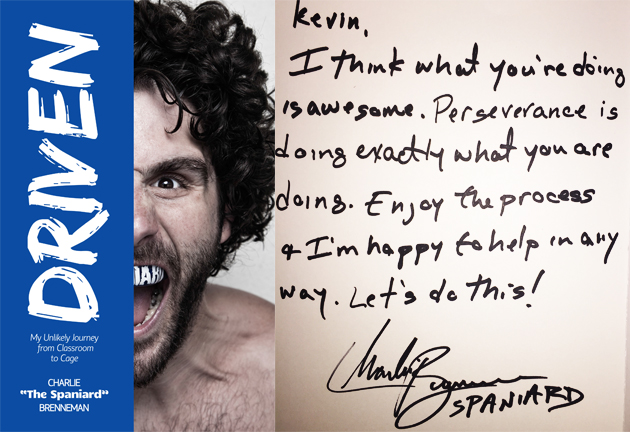 DRIVEN
My Unlikely Journey
from Classroom
to Cage
CHARLIE
"The Spaniard"
BRENNEMAN
Kevin,
I think what you're doing
is awesome. Perseverance is
doing exactly what you are
doing. Enjoy the process
& I'm happy to help in any
way. Let's do this!
SPANIARD